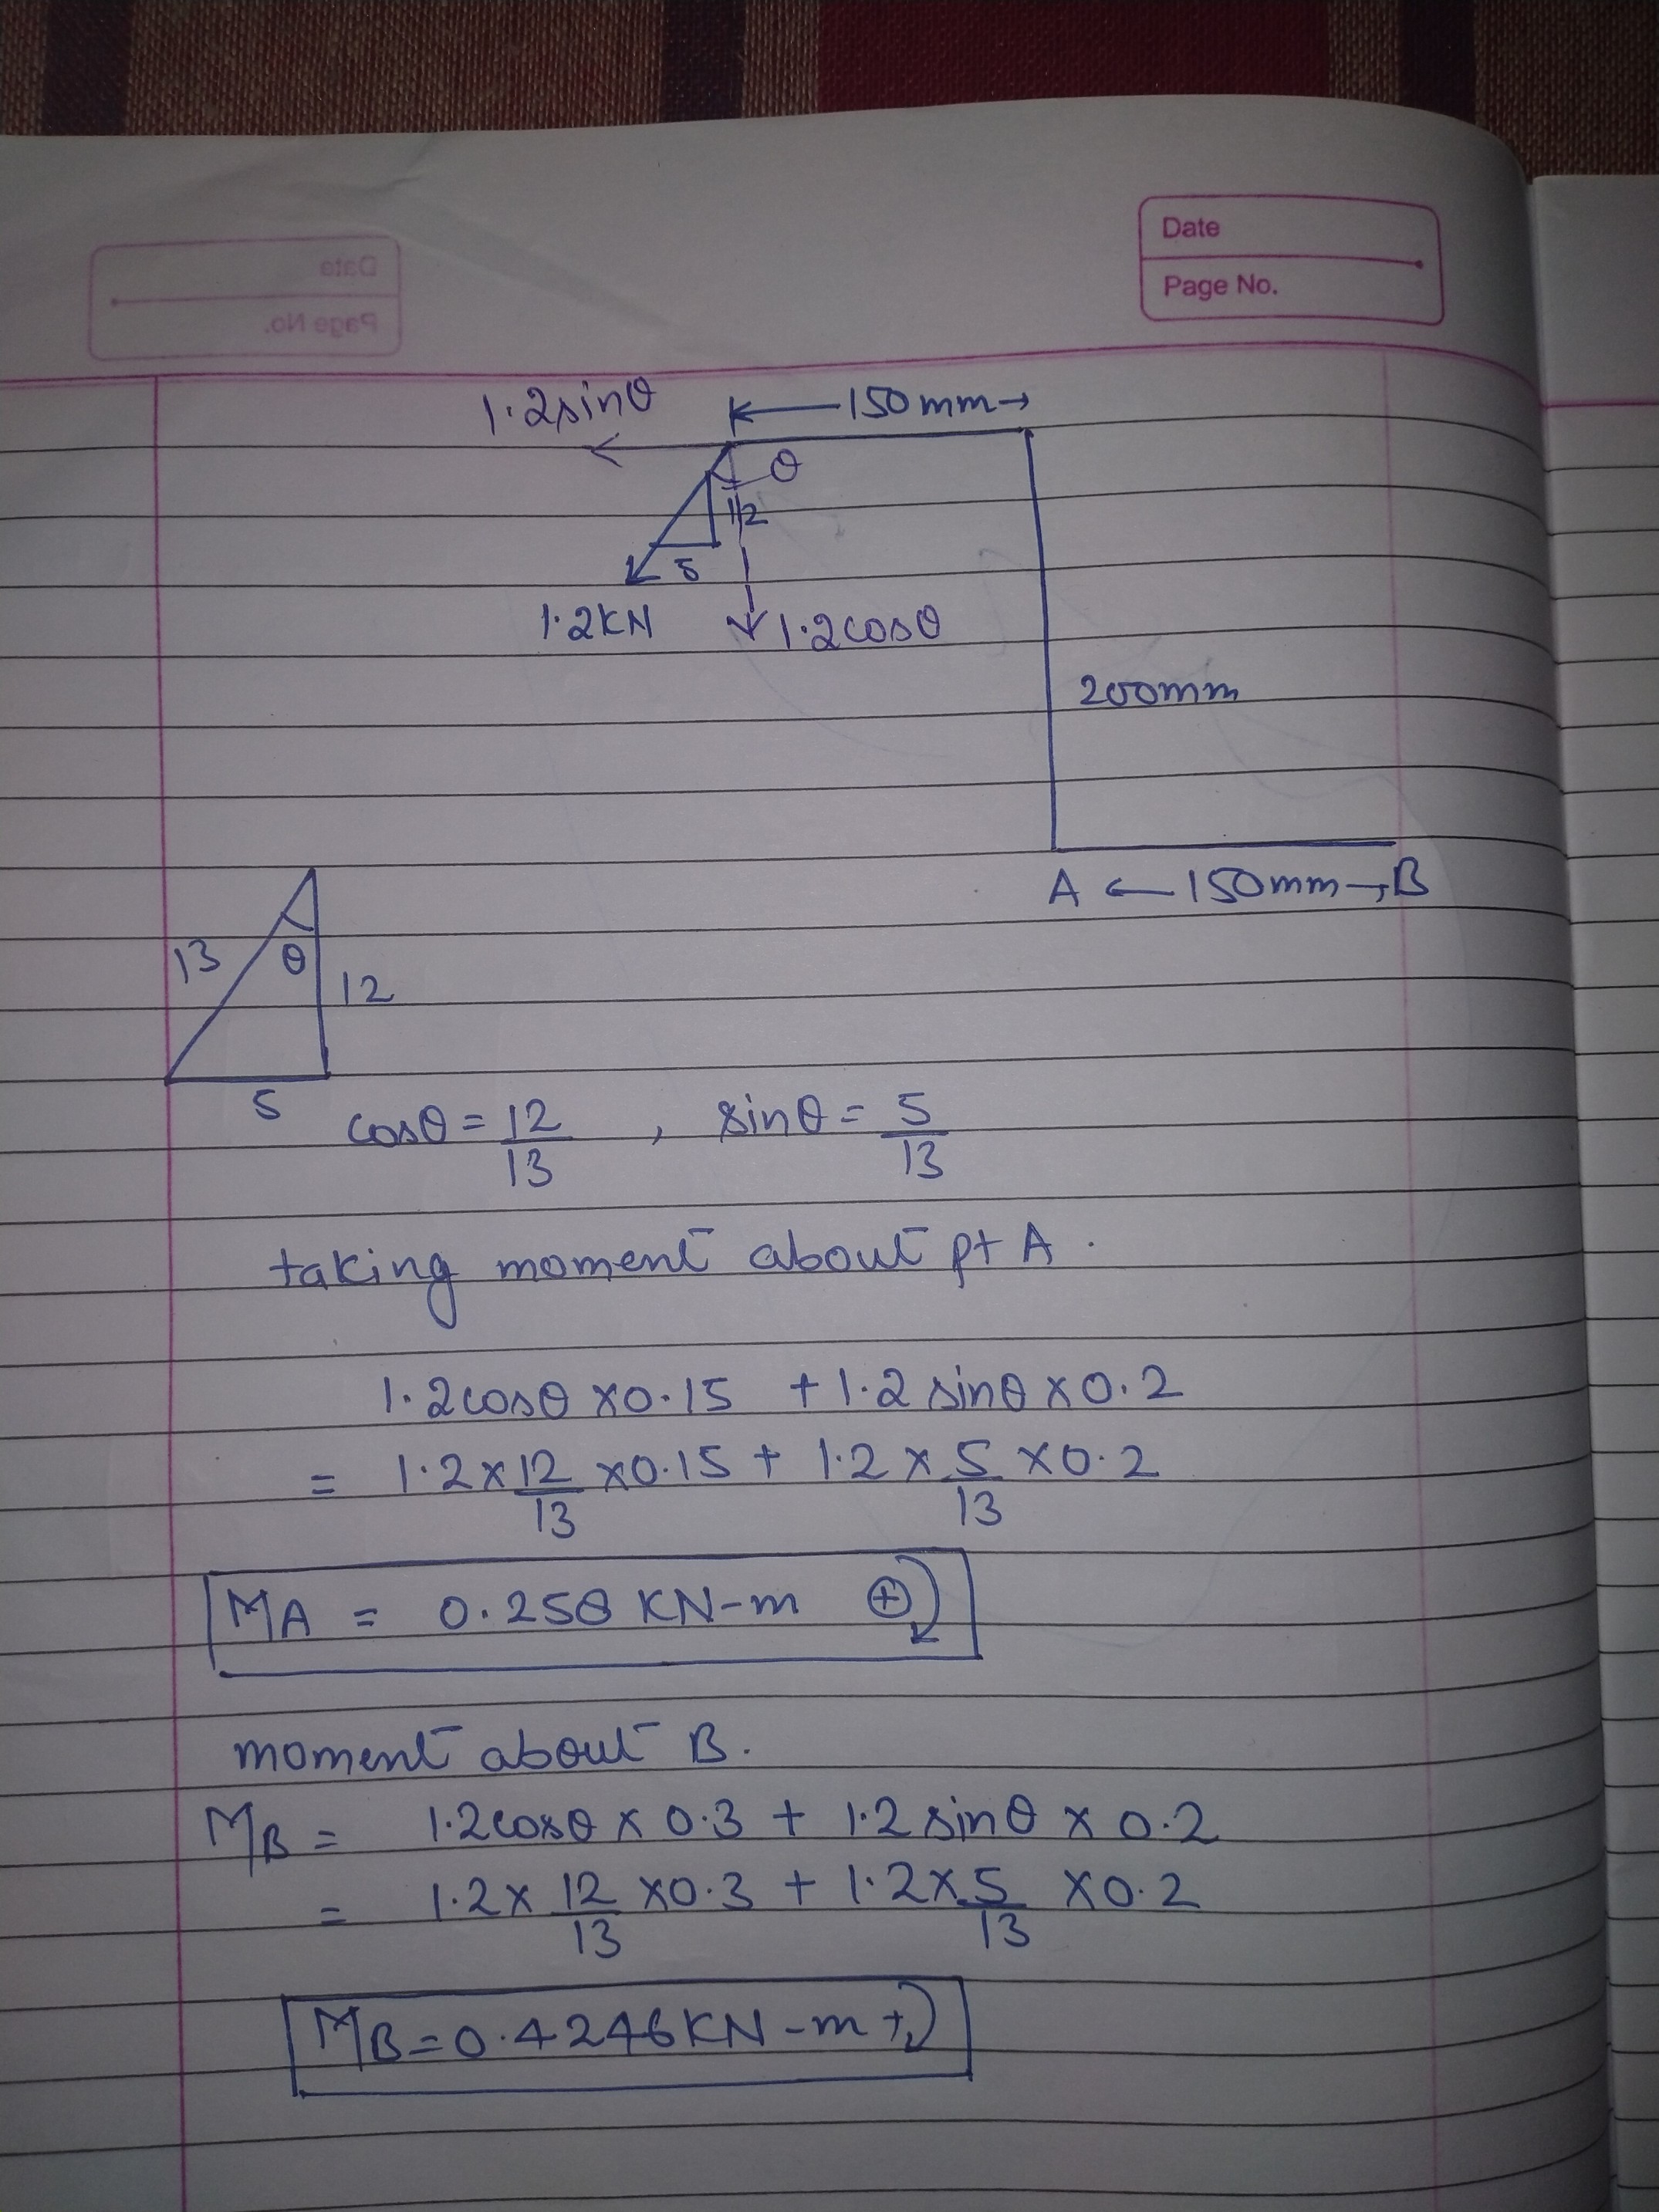 Date
Page No.
Date
Page No.
1.2sinθ
150mm
θ
12
5
1.2KN
1.2cosθ
200mm
A ← 150mm → B
13
θ
12
5
cosθ = 12/13 , sinθ = 5/13
taking moment about pt A.
1.2cosθ x0.15 + 1.2 sinθ x 0.2
= 1.2 x 12/13 x0.15 + 1.2 x 5/13 x0.2
MA = 0.258 KN-m ⊕
moment about B.
MB = 1.2cosθ x 0.3 + 1.2 sinθ x 0.2
= 1.2x 12/13 x0.3 + 1.2x 5/13 x0.2
MB=0.4246KN-m +